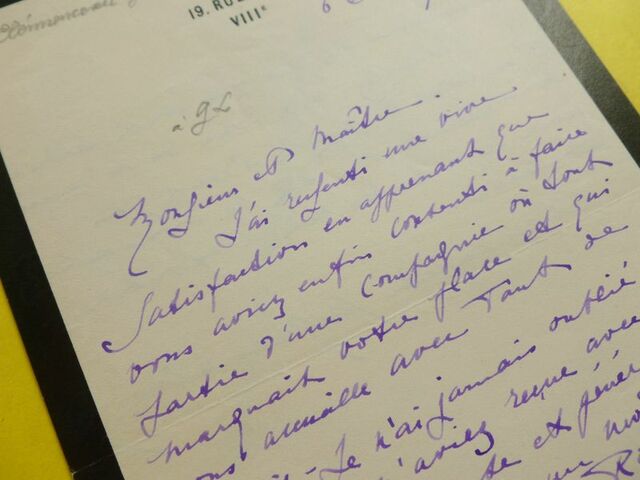 19, RU
VIIIe
à GL
Monsieur et Maître.
J'ai ressenti une vive
Satisfaction en apprenant que
vous aviez enfin consenti à faire
partie d'une Compagnie où tout
marquait votre place et qui
vous accueille avec Tant de
Je n'ai jamais oublié
m'aviez reçue avec
te et génér
un mo